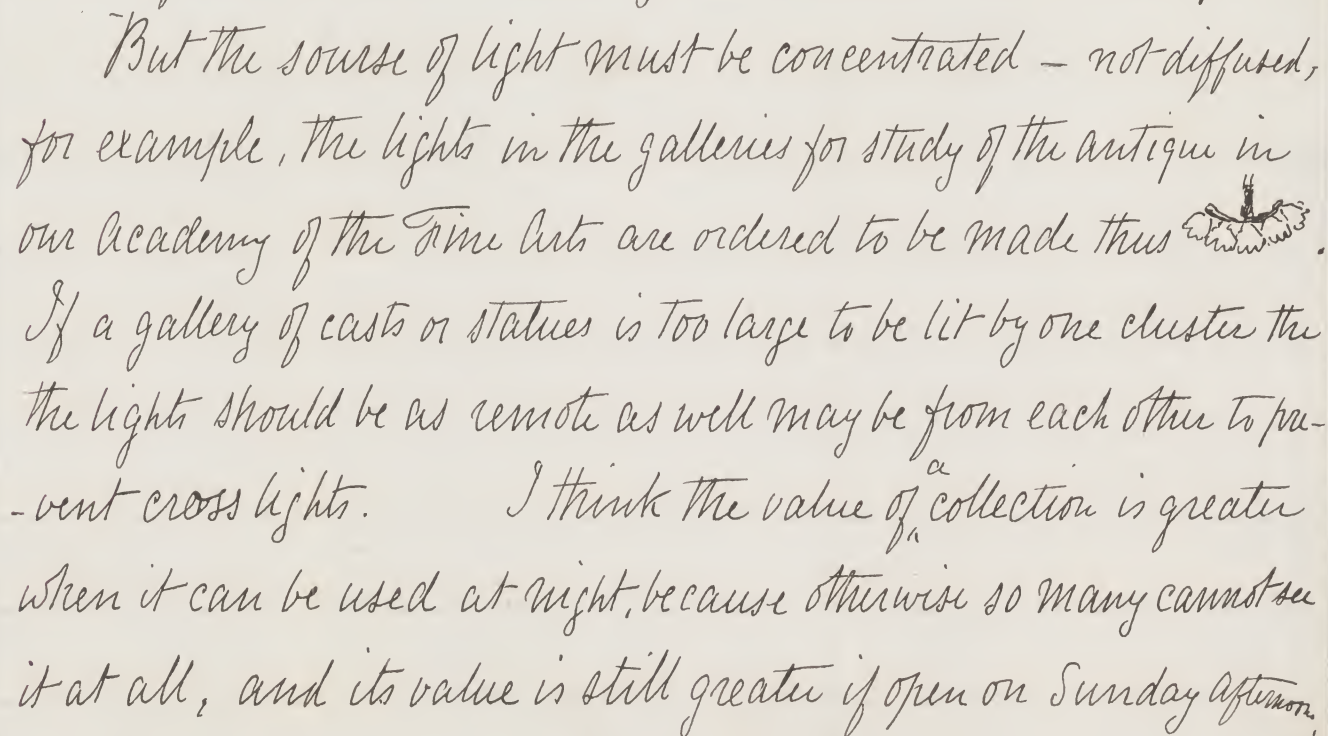 But the sourse of light must be concentrated – not diffused,
for example, the lights in the galleries for study of the antique in
our Academy of the Fine Arts are ordered to be made thus .
If a gallery of casts or statues is too large to be lit by one cluster the
the lights should be as remote as well may be from each other to pre-
-vent cross lights. I think the value of a collection is greater
when it can be used at night, because otherwise so many cannot see
it at all, and its value is still greater if open on Sunday afternoon.